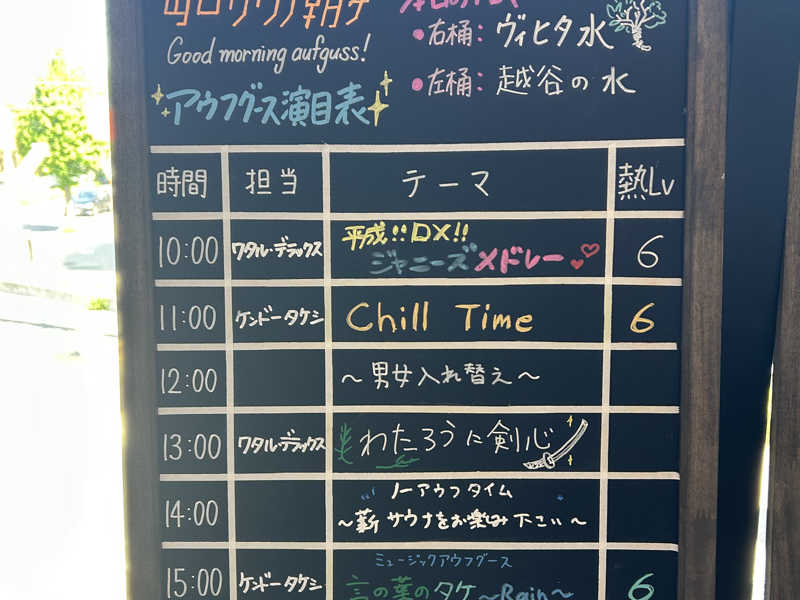 Good morning aufguss!
•右桶: ヴィヒタ水
•左桶: 越谷の水
アウフグース演目表
時間 担当 テーマ 熱Lv
10:00 ワタル・デラックス 平成!!DX!! 6
ジャニーズメドレー
11:00 ケンドータケシ Chill Time 6
12:00 〜男女入れ替え〜
13:00 ワタル・デラックス わたろうに剣心
14:00 ノーアウフタイム
〜薪サウナをお楽しみ下さい〜
15:00 ケンドータケシ ミュージックアウフグース 6
言の葉のタケ〜Rain〜